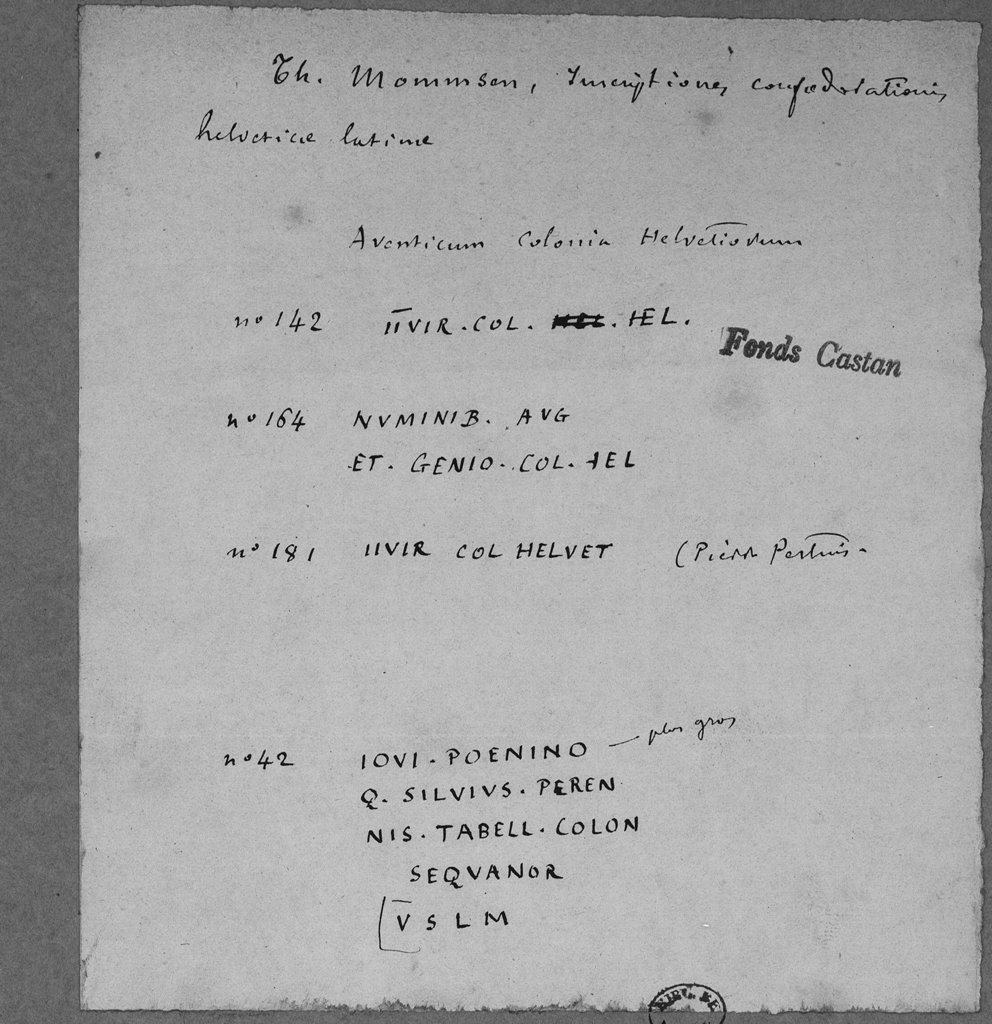 Th. Mommsen, Inscriptiones confœderationis
helveticæ latinæ
Aventicum Colonia Helvetiorum
nº 142 IIVIR . COL. . HEL.
Fonds Castan
nº 164 NVMINIB. AVG
ET . GENIO . COL . HEL
nº 181 IIVIR COL HELVET (Pierre Pertuis -
nº 42 IOVI . POENINO — plus gros
Q. SILVIVS . PEREN
NIS . TABELL . COLON
SEQVANOR
V S L M